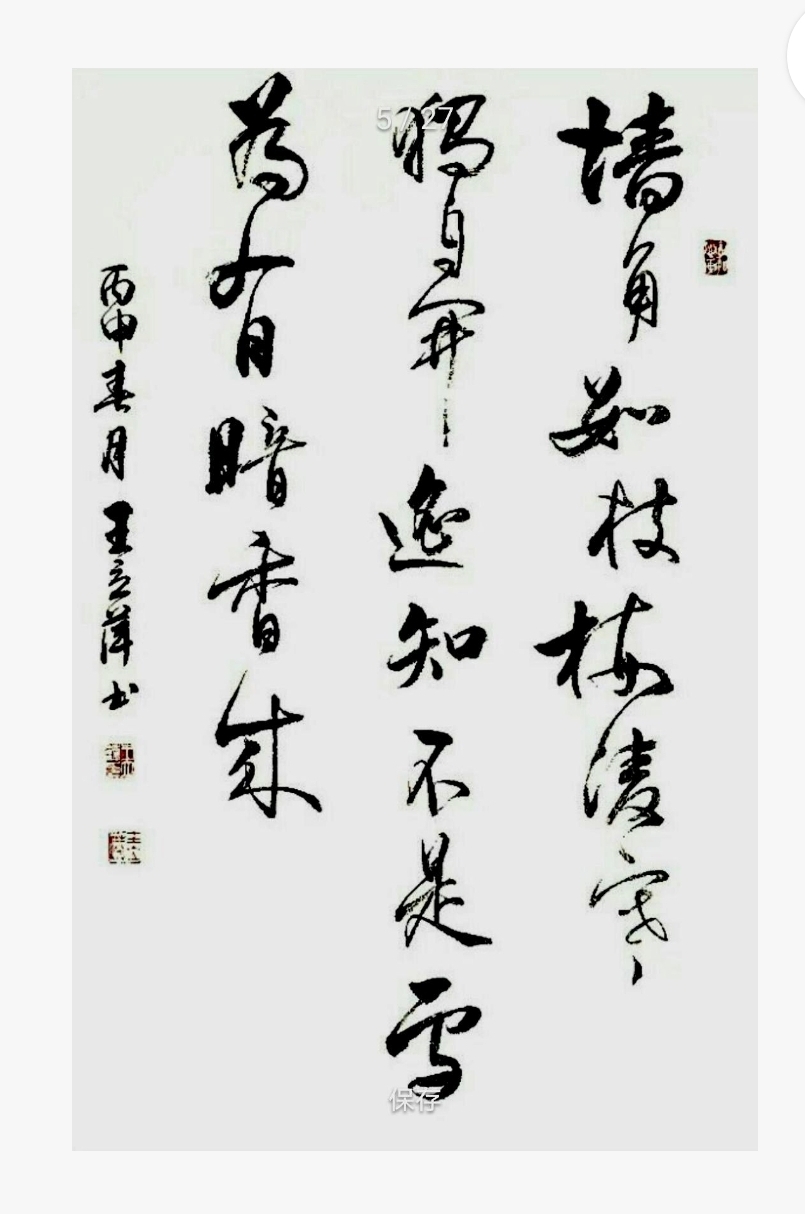 5 / 27
墙角数枝梅凌寒
獨自開遥知不是雪
為有暗香来
丙申春月王立萍书
保存